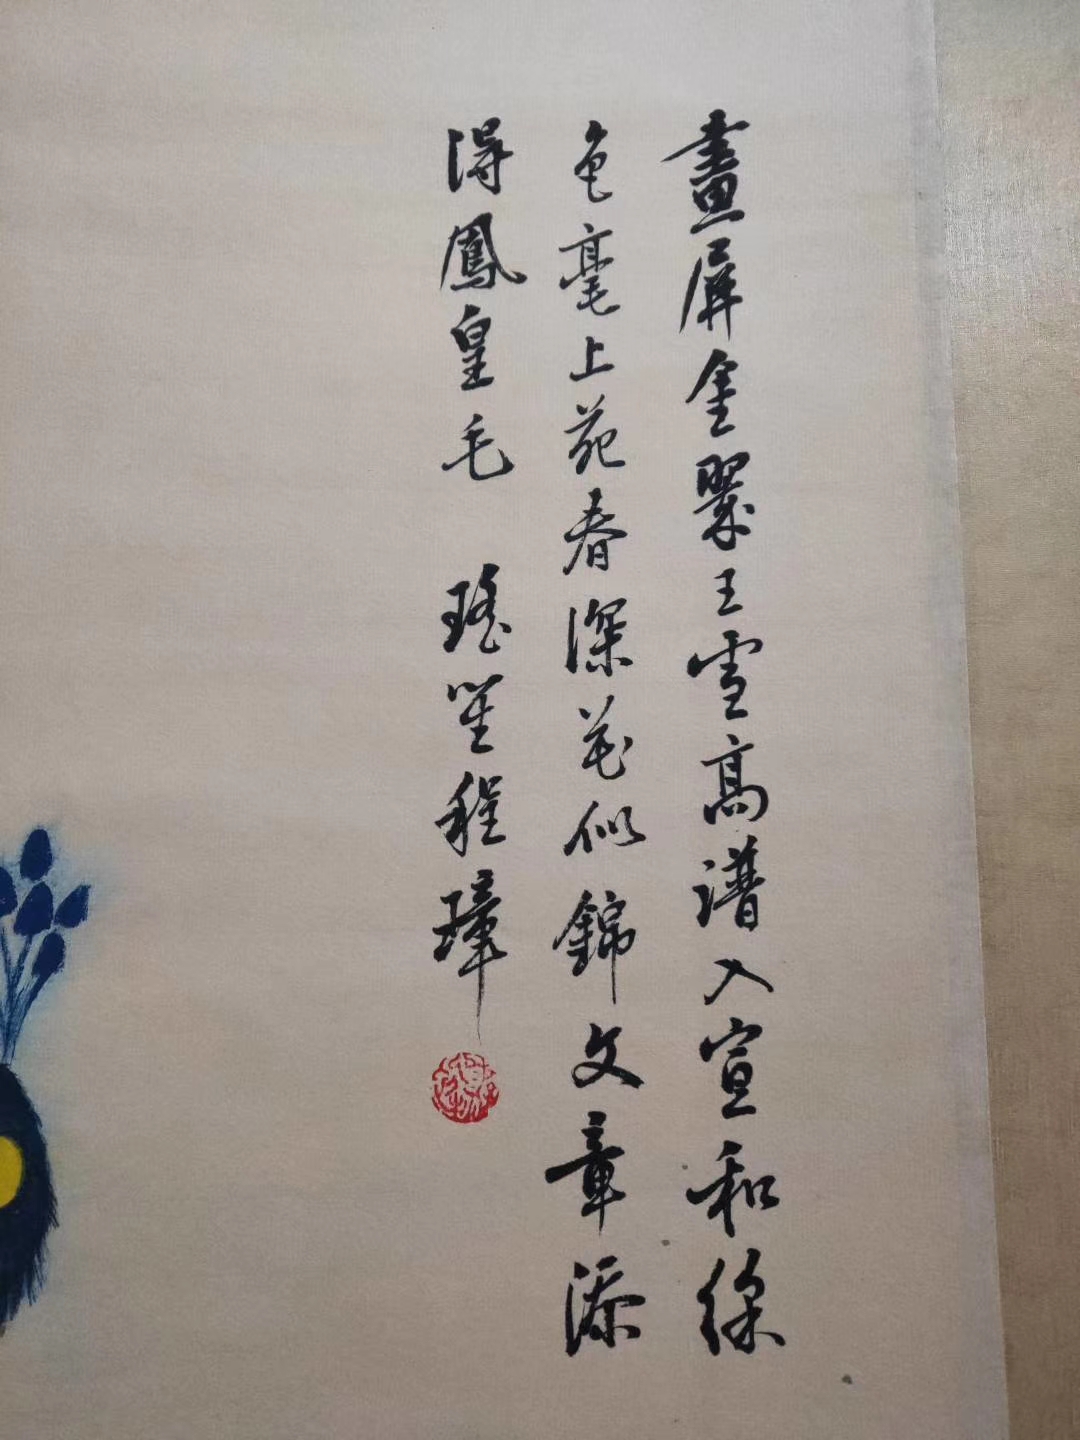 畫屏金翠玉雪高譜入宣和綵
色毫上苑春深花似錦文章添
得鳳皇毛 瑤笙程璋